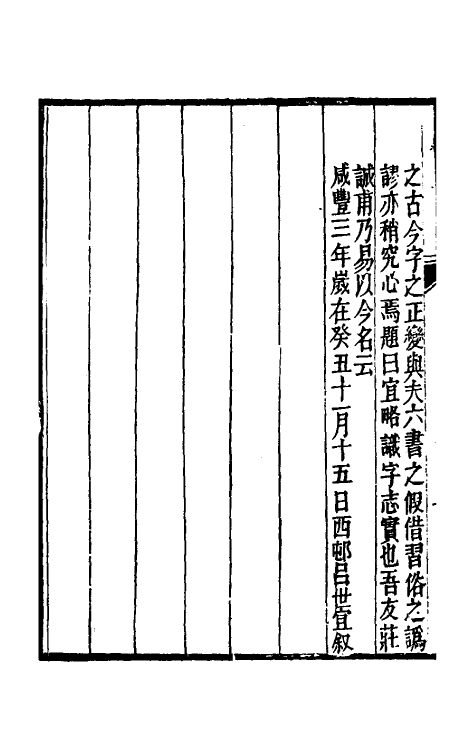 之古今字之正變與夫六書之假借習俗之譌
謬亦稍究心焉題曰宜略識字志實也吾友莊
誠甫乃易以今名云
咸豐三年歲在癸丑十一月十五日西邨呂世宜叙